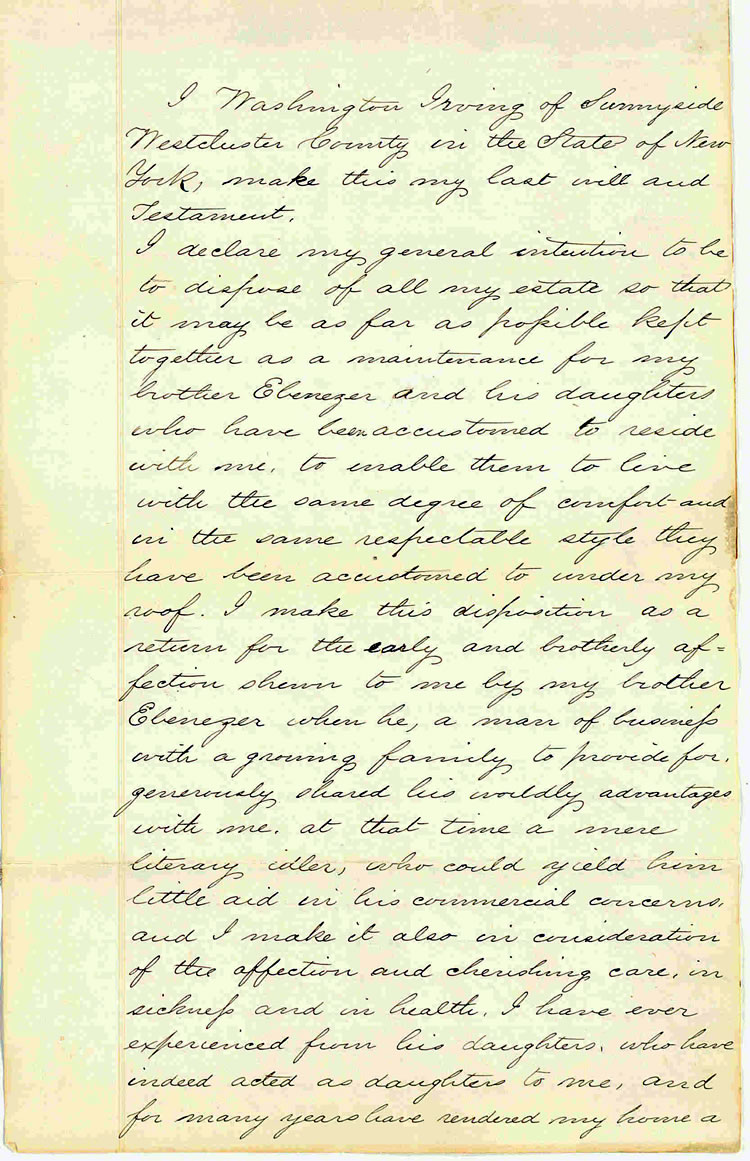 I Washington Irving of Sunnyside
Westchester County in the State of New
York, make this my last will and
Testament.
I declare my general intention to be
to dispose of all my estate so that
it may be as far as possible kept
together as a maintenance for my
brother Ebenezer and his daughters
who have been accustomed to reside
with me, to enable them to live
with the same degree of comfort and
in the same respectable style they
have been accustomed to under my
roof. I make this disposition as a
return for the early and brotherly af=
fection shewn to me by my brother
Ebenezer when he, a man of business
with a growing family to provide for,
generously shared his worldly advantages
with me, at that time a mere
literary idler, who could yield him
little aid in his commercial concerns,
and I make it also in consideration
of the affection and cherishing care, in
sickness and in health, I have ever
experienced from his daughters, who have
indeed acted as daughters to me, and
for many years have rendered my home a